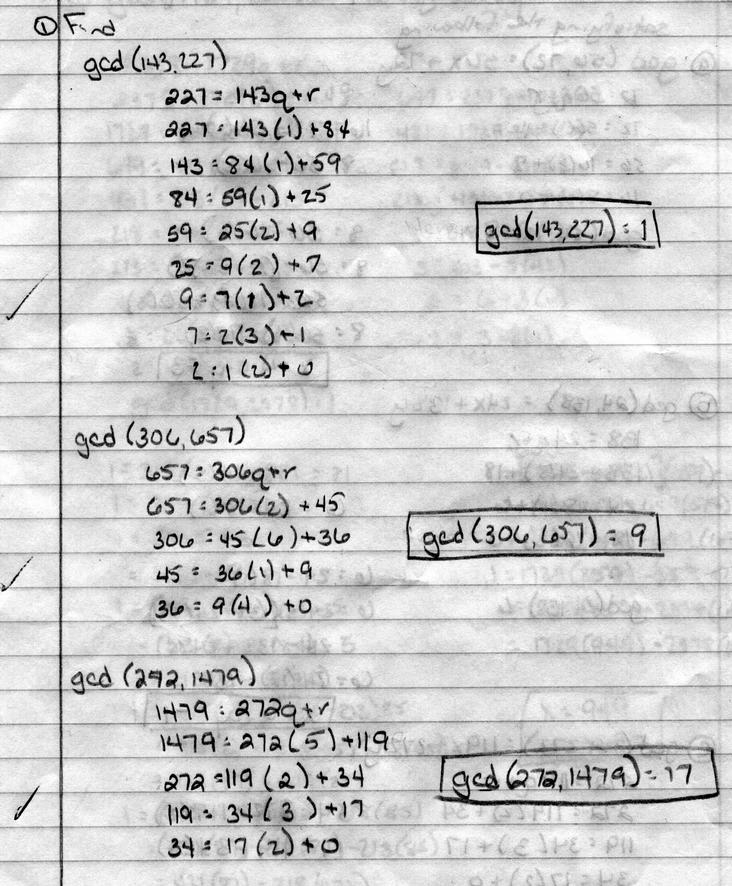 ① Find
gcd (143,227)
227 = 143q+r
227 = 143(1)+84
143 = 84(1)+59
84 = 59(1)+25
59 = 25(2)+9
gcd(143,227) = 1
25 = 9(2)+7
9 = 7(1)+2
7 = 2(3)+1
2 = 1(2)+0
gcd (306,657)
657 = 306q+r
657 = 306(2)+45
306 = 45(6)+36
gcd(306,657) = 9
45 = 36(1)+9
36 = 9(4)+0
gcd (272,1479)
1479 = 272q+r
1479 = 272(5)+119
272 = 119(2)+34
gcd(272,1479) = 17
119 = 34(3)+17
34 = 17(2)+0